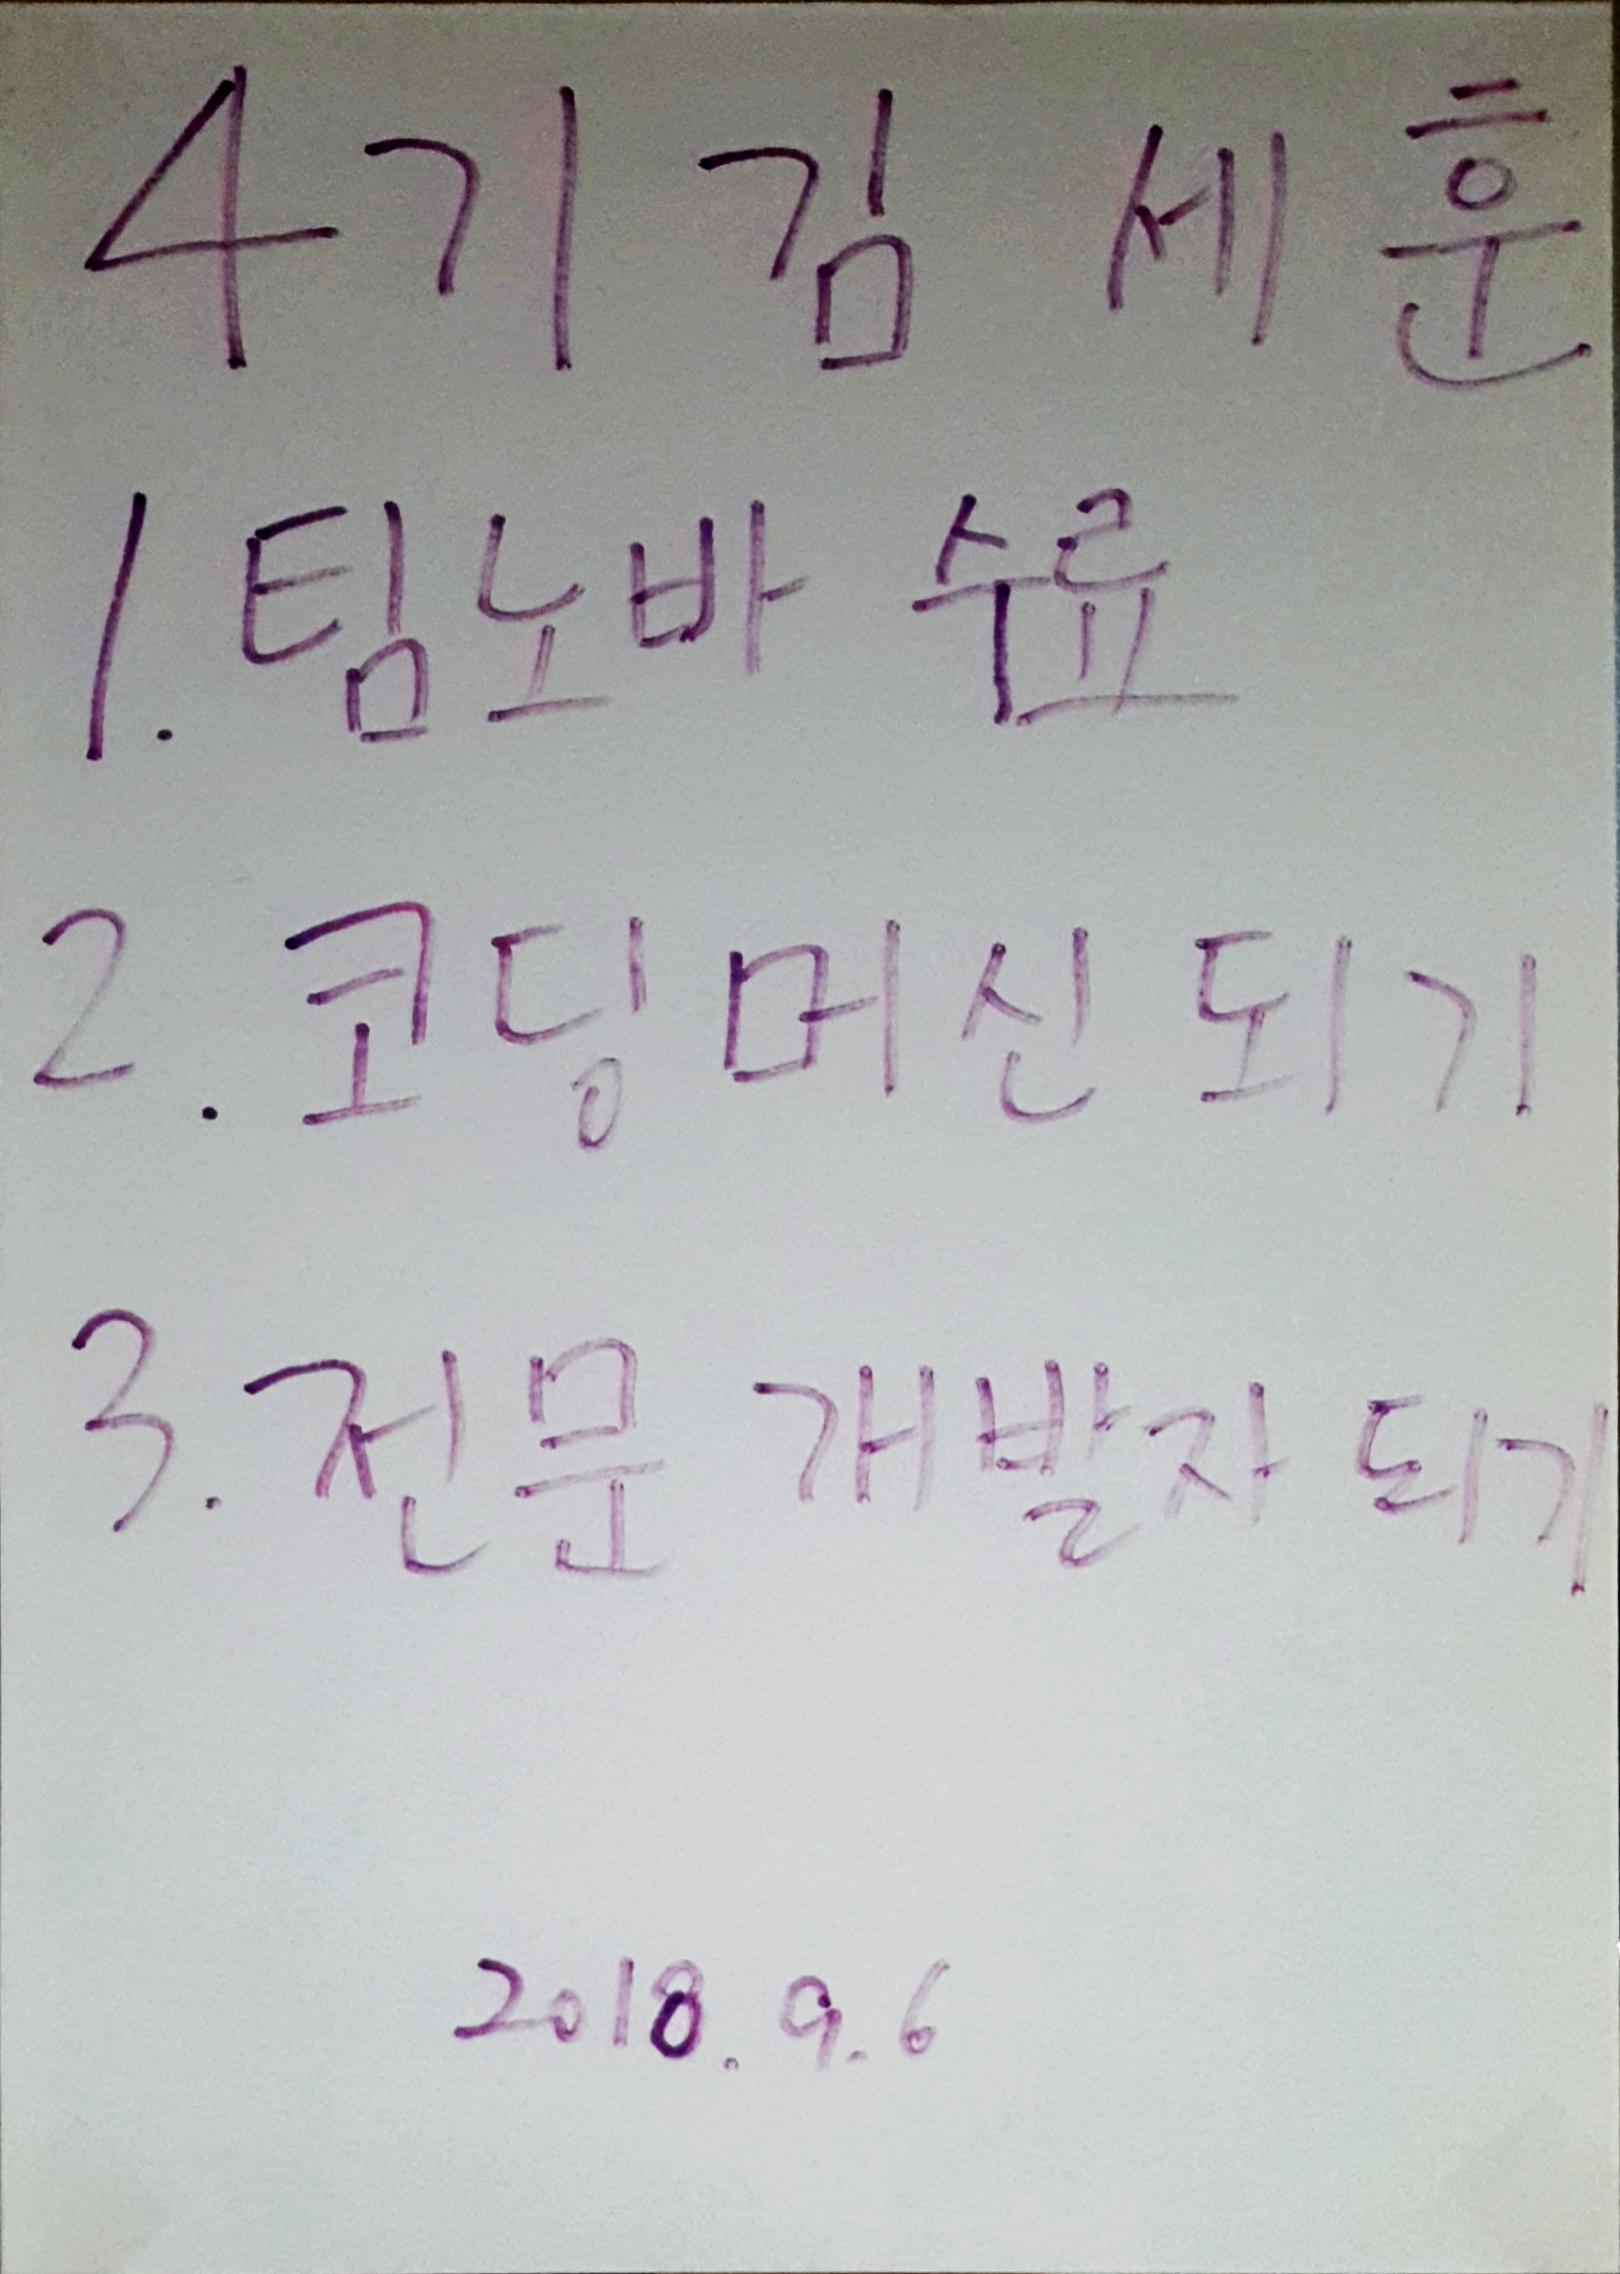 4기 김 세훈
1. 팀노바 수료
2. 코딩머신 되기
3. 전문 개발자 되기
2018. 9. 6